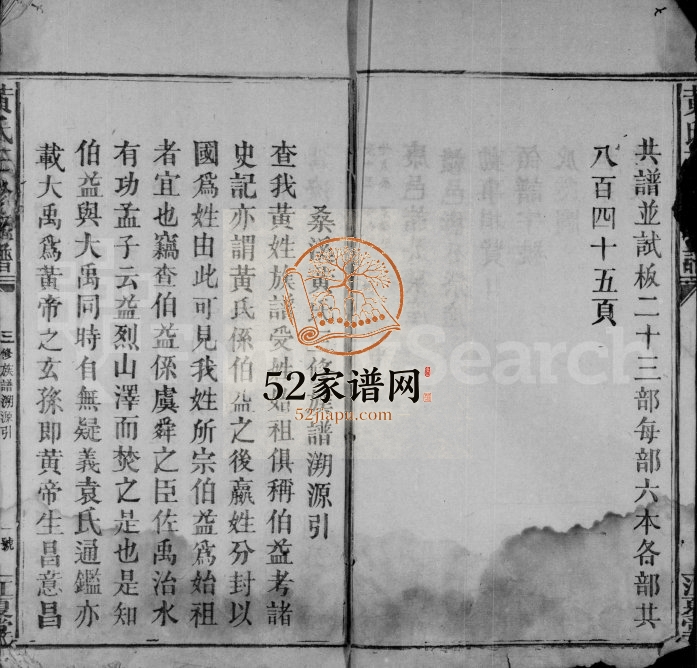 共譜並試板二十三部每部六本各部共
八百四十五頁
桑溪黃氏三修族譜溯源引
查我黃姓族譜受姓始祖俱稱伯益考諸
史記亦謂黃氏係伯益之後嬴姓分封以
國爲姓由此可見我姓所宗伯益爲始祖
者宜也竊查伯益係虞舜之臣佐禹治水
有功孟子云益烈山澤而焚之是也是知
伯益與大禹同時自無疑義袁氏通鑑亦
載大禹爲黃帝之玄孫即黃帝生昌意昌
黃氏三修族譜
三修族譜溯源引
一號
江夏堂
52家谱网
52jiapu.com
Search